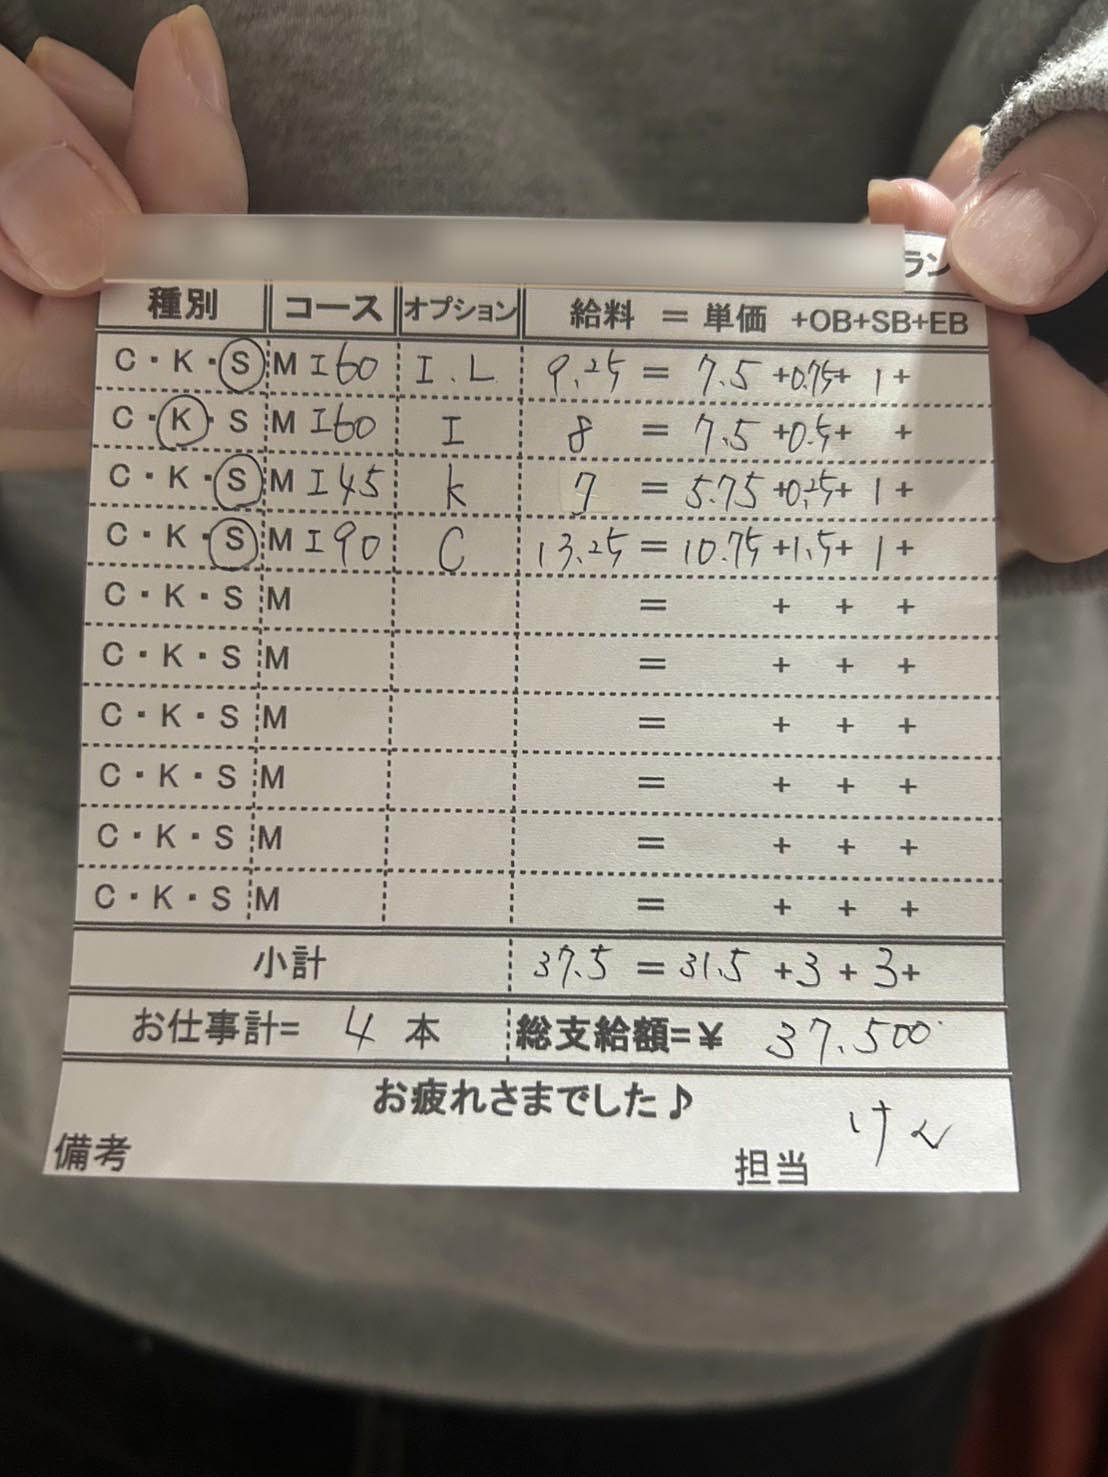 ラン
種別 コース オプション 給料 = 単価 +OB+SB+EB
C・K・S M I60 I.L 9.25 = 7.5 +0.75+ 1 +
C・K・S M I60 I 8 = 7.5 +0.5+ +
C・K・S M I45 k 7 = 5.75 +0.25+ 1 +
C・K・S M I90 C 13.25 = 10.75 +1.5+ 1 +
C・K・S M = + + +
C・K・S M = + + +
C・K・S M = + + +
C・K・S M = + + +
C・K・S M = + + +
C・K・S M = + + +
小計 37.5 = 31.5 +3 + 3+
お仕事計= 4 本 総支給額=¥ 37.500
お疲れさまでした♪
備考 担当 けん